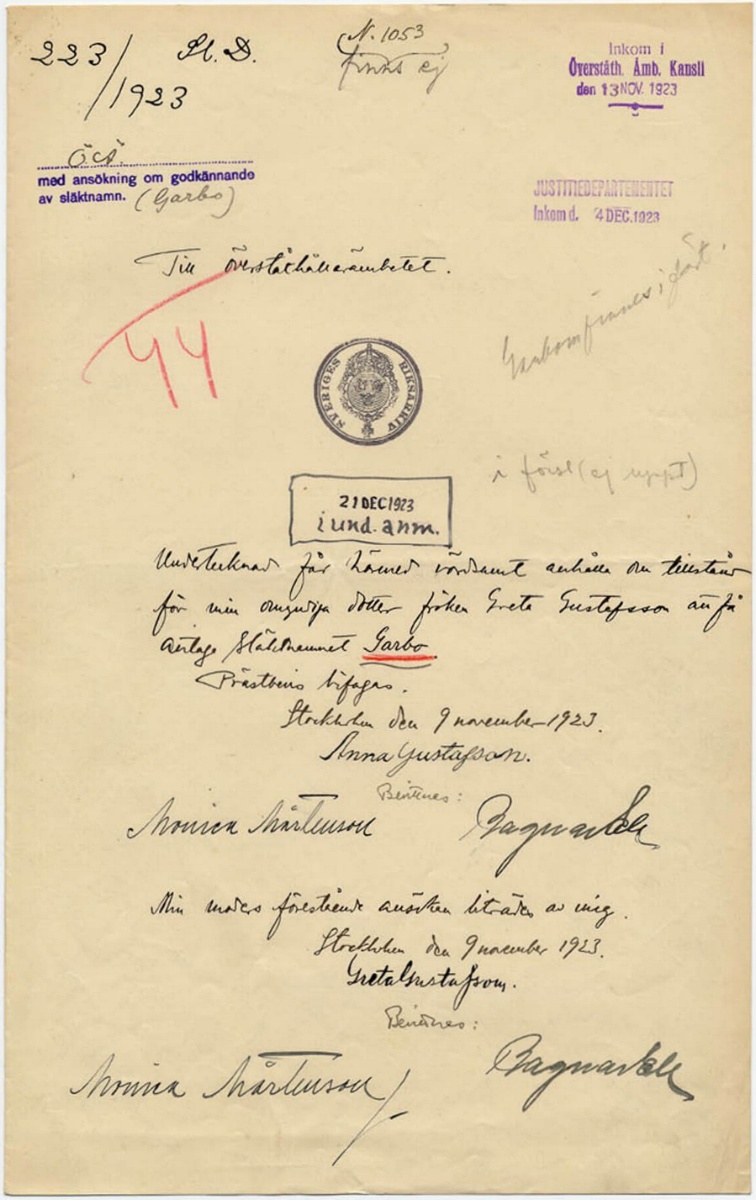 223/1923
St. D.
N. 1053
finns ej
Inkom i
Överståth. Ämb. Kansli
den 13 NOV. 1923
Ö.Ä.
med ansökning om godkännande
av släktnamn. (Garbo)
JUSTITIEDEPARTEMENTET
Inkom d. 4 DEC. 1923
Till Överståthållarämbetet.
44
SVERIGES RIKSARKIV
i först (ej)
21 DEC 1923
i und. anm.
Undertecknad får härmed vördsamt anhålla om tillstånd
för min omyndiga dotter fröken Greta Gustafsson att få
antaga släktnamnet Garbo.
Prästbevis bifogas.
Stockholm den 9 november 1923.
Anna Gustafson.
Bevittnes:
Monica Mårtenson
Min moders förestående ansökan biträdes av mig.
Stockholm den 9 november 1923.
Greta Gustafsson.
Bevittnes:
Monica Mårtenson